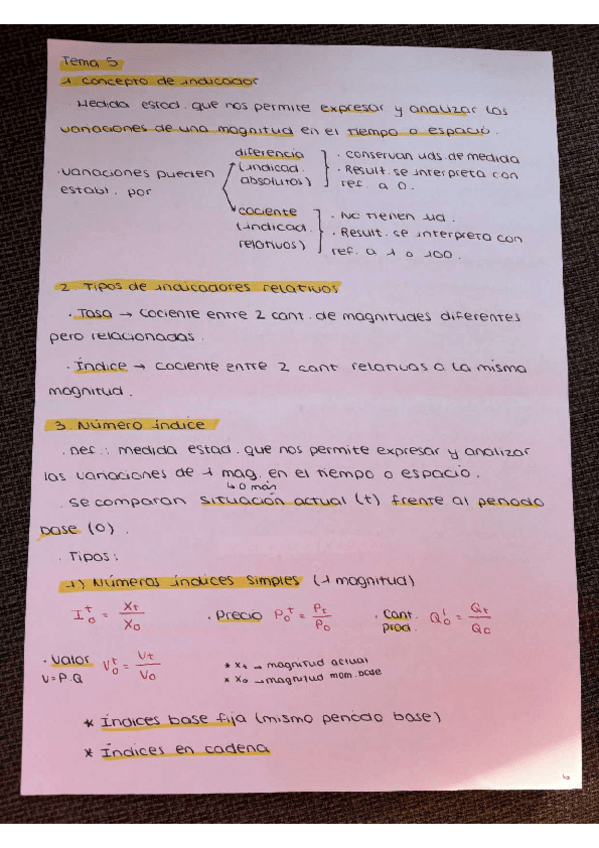 Tema 5
1 Concepto de indicador
· Medida estad. que nos permite expresar y analizar las
variaciones de una magnitud en el tiempo o espacio.
· Variaciones pueden
establ. por
diferencia
(indicad.
absolutos)
· conservan uds. de medida
· Result. se interpreta con
ref. a 0.
cociente
(indicad.
relativos)
· No tienen ud.
· Result. se interpreta con
ref. a 1 o 100.
2. Tipos de indicadores relativos
· Tasa → cociente entre 2 cant. de magnitudes diferentes
pero relacionadas.
· Índice → cociente entre 2 cant. relativas a la misma
magnitud.
3. Número índice
· Def.: medida estad. que nos permite expresar y analizar
las variaciones de 1 mag. en el tiempo o espacio.
↳ o más
· Se comparan situación actual (t) frente al periodo
base (0).
· Tipos:
1) Números índices simples (1 magnitud)
I₀ᵗ = Xt/X0
· Precio P₀ᵗ = Pt/P0
· Cant. prod. Q₀ᵗ = Qt/Q0
· Valor V₀ᵗ = Vt/V0
V=P·Q
* Xt → magnitud actual
* X0 → magnitud mom. base
* Índices base fija (mismo periodo base)
* Índices en cadena